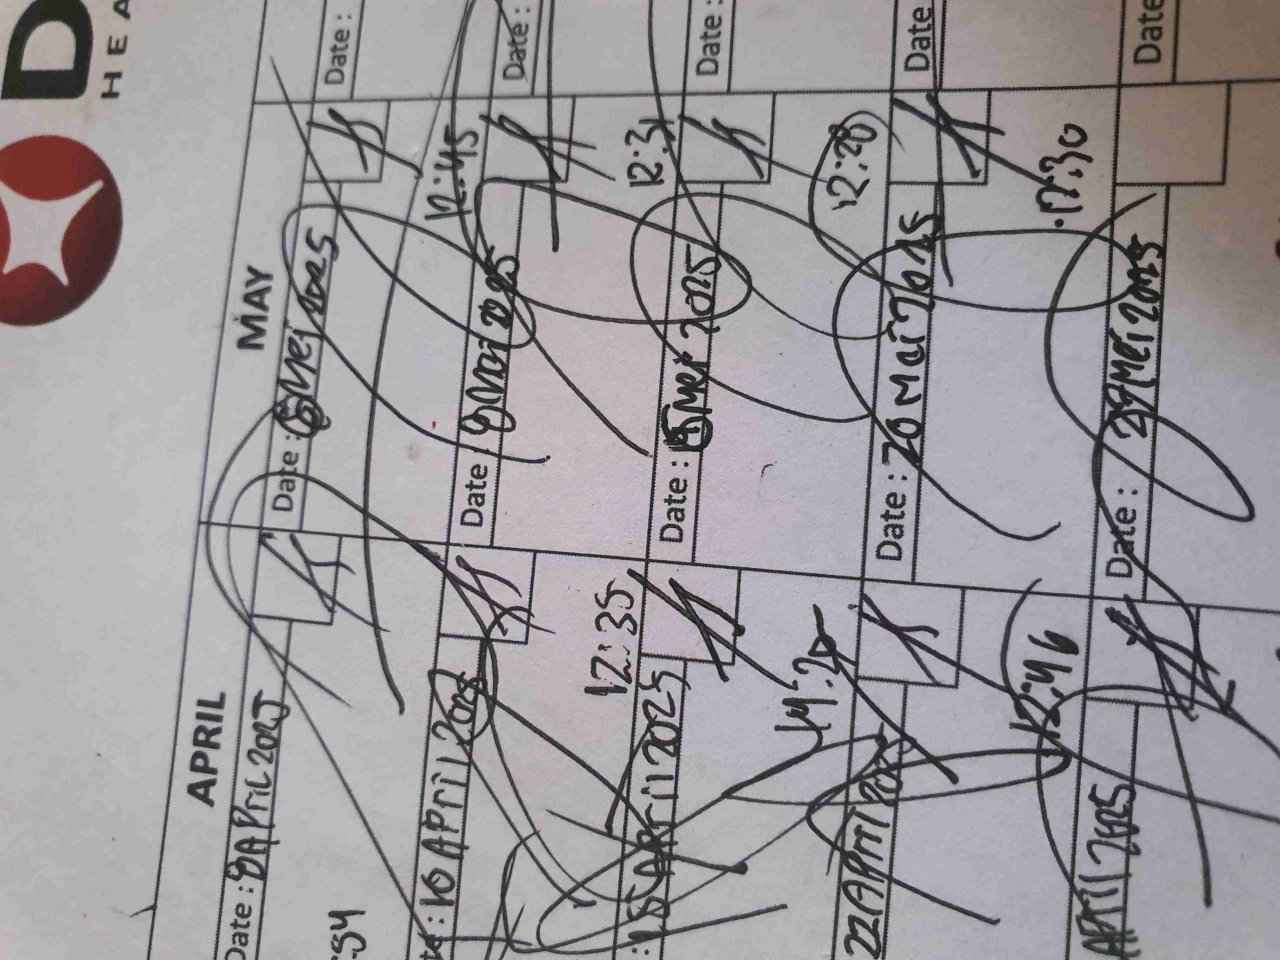 D
HEA
APRIL
Date: 8 APriL 2025
:54
te: 10 APril 2025
12:35
: 15 APril 2025
14:20
22 APril 2025
12:46
APril 2025
MAY
Date: 6 Mei 2025
12:45
Date: 8 Mei 2025
12:31
Date: 15 Mei 2025
12:20
Date: 20 Mei 2025
12:30
Date: 29 Mei 2025
Date:
Date:
Date:
Date
Date